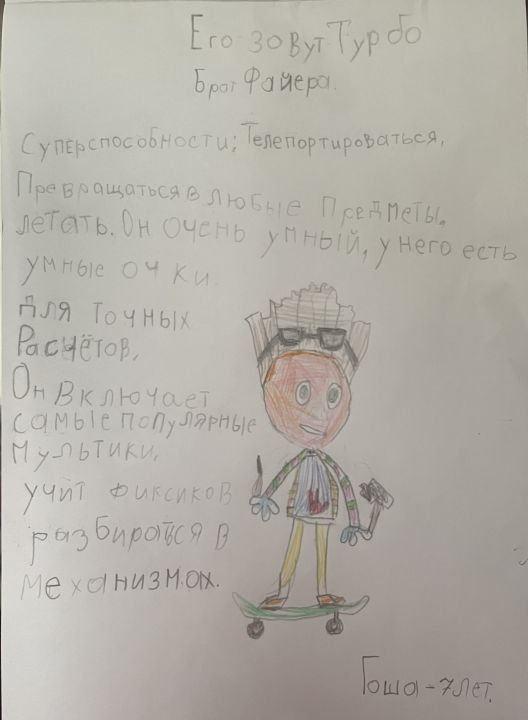 Его зовут Турбо
Брат Файера.
Суперспособности; Телепортироваться,
Превращаться в любые предметы,
летать. Он очень умный, у него есть
умные очки
для точных
Расчётов,
Он Включает
самые популярные
мультики,
учит фиксиков
разбиратся в
механизмах.
Гоша - 7 лет.